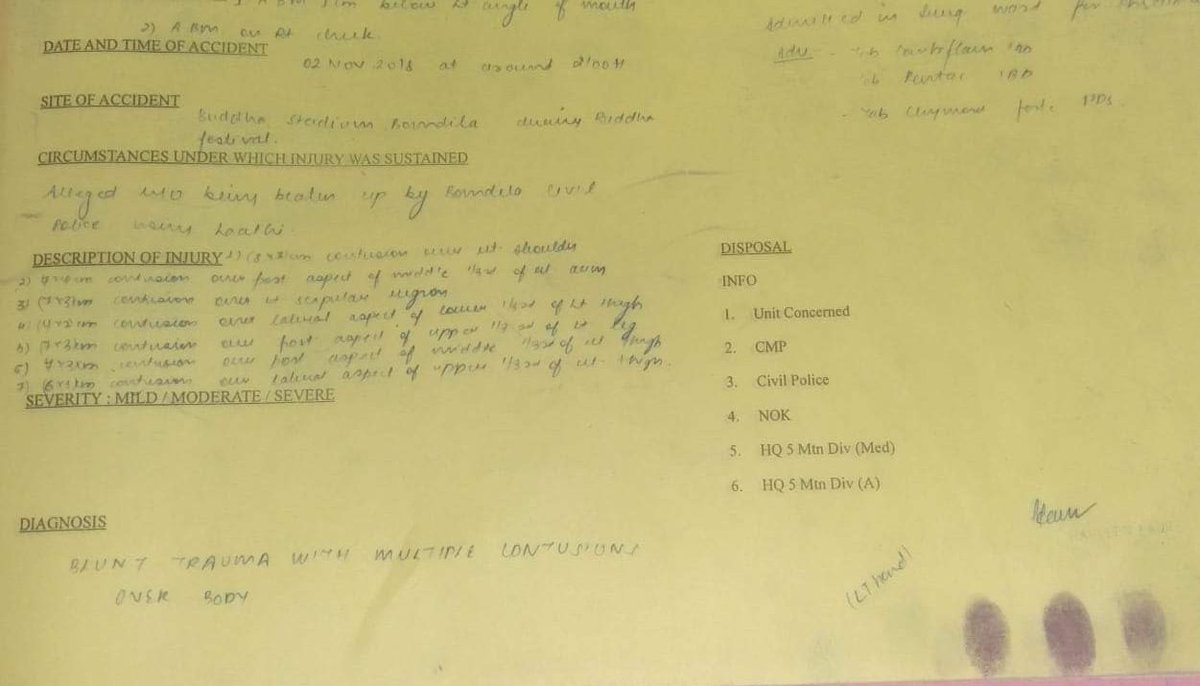 below Lt angle of mouth
2) ABm on Rt cheek.
DATE AND TIME OF ACCIDENT
02 NOV 2018 at around 2100H
SITE OF ACCIDENT
Buddha Stadium Bomdila during Buddha
festival.
CIRCUMSTANCES UNDER WHICH INJURY WAS SUSTAINED
Alleged H/O being beaten up by Bomdila civil
Police using Laathi.
DESCRIPTION OF INJURY 1) contusion over shoulder
2) contusion over post aspect of middle 1/3rd of arm
3) (7x3)cm contusion over scapular region
4) contusion over lateral aspect of lower 1/3rd of Lt thigh
5) (7x3)cm contusion over post aspect of upper 1/3rd of Lt leg
6) 7x3cm contusion over post aspect of middle 1/3rd of thigh
7) contusion over lateral aspect of upper 1/3rd of thigh.
SEVERITY : MILD / MODERATE / SEVERE
DIAGNOSIS
BLUNT TRAUMA WITH MULTIPLE CONTUSIONS
OVER BODY
admitted in surg ward for
Adv - Tab
Tab
- Tab forte
DISPOSAL
INFO
1. Unit Concerned
2. CMP
3. Civil Police
4. NOK
5. HQ 5 Mtn Div (Med)
6. HQ 5 Mtn Div (A)
(LT hand)